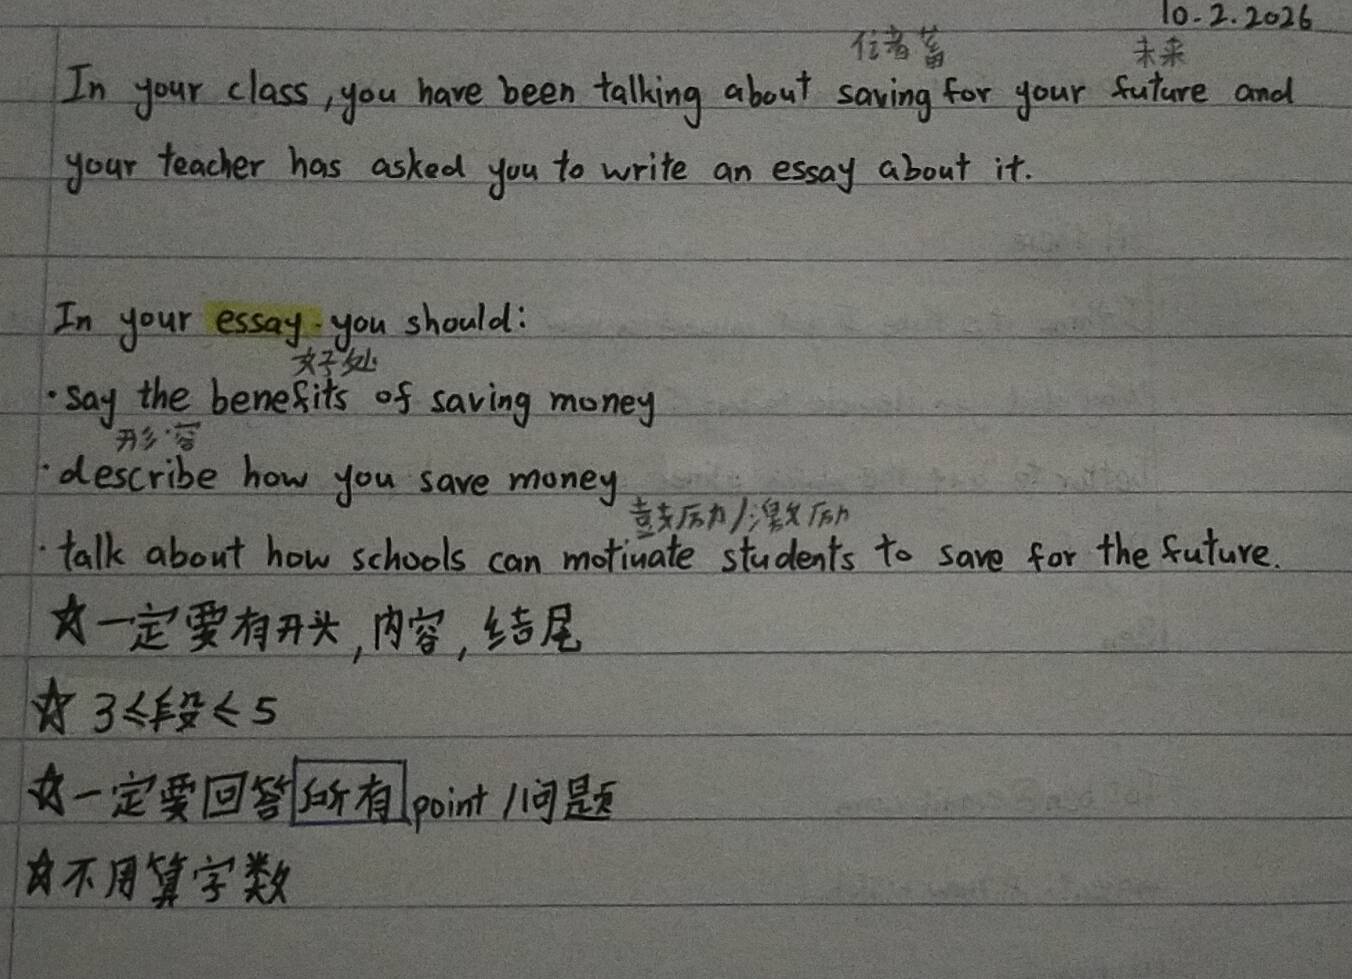 10.2.2026
储蓄 未来
In your class, you have been talking about saving for your future and
your teacher has asked you to write an essay about it.
In your essay. you should:
好处
·say the benefits of saving money
形容
·describe how you save money
鼓励/激励
·talk about how schools can motivate students to save for the future.
☆一定要有开头,内容,结尾
☆ 3≤段≤5
☆一定要回答所有point/问题
☆不用算字数